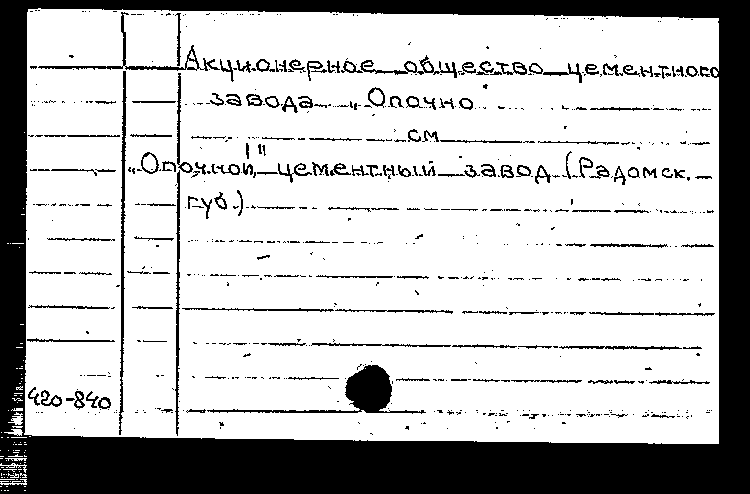 Акционерное общество цементного
завода „Опочно
см
„Опочной" цементный завод (Радомск.
губ.)
420-840